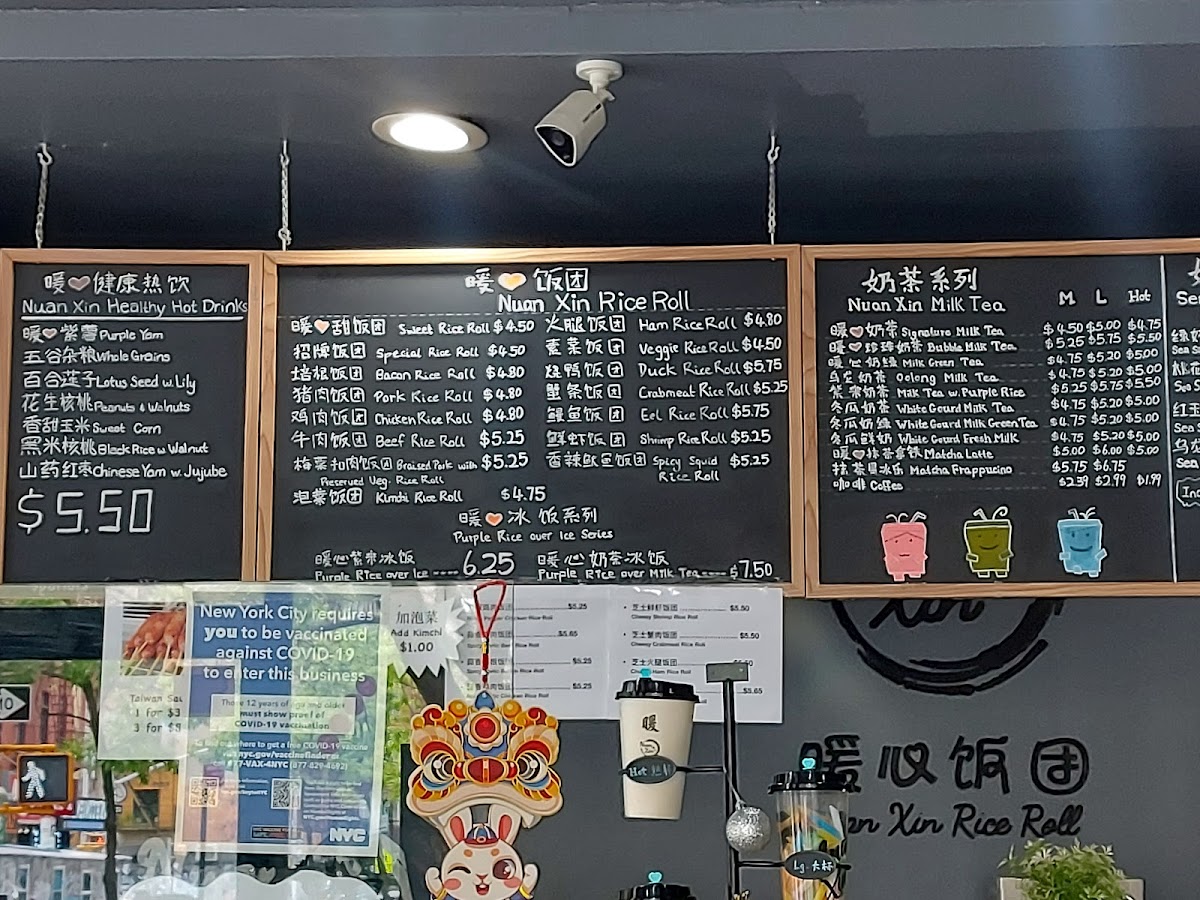 暖健康热饮
Nuan Xin Healthy Hot Drinks
暖紫薯 Purple Yam
五谷杂粮 Whole Grains
百合莲子 Lotus Seed w. Lily
花生核桃 Peanuts & Walnuts
香甜玉米 Sweet Corn
黑米核桃 Black Rice w Walnut
山药红枣 Chinese Yam w. Jujube
$5.50
暖饭团
Nuan Xin Rice Roll
暖甜饭团 Sweet Rice Roll $4.50
招牌饭团 Special Rice Roll $4.50
培根饭团 Bacon Rice Roll $4.80
猪肉饭团 Pork Rice Roll $4.80
鸡肉饭团 Chicken Rice Roll $4.80
牛肉饭团 Beef Rice Roll $5.25
梅菜扣肉饭团 Braised Pork with $5.25
Preserved Veg. Rice Roll
泡菜饭团 Kimchi Rice Roll $4.75
火腿饭团 Ham Rice Roll $4.80
素菜饭团 Veggie Rice Roll $4.50
烧鸭饭团 Duck Rice Roll $5.75
蟹条饭团 Crabmeat Rice Roll $5.25
鳗鱼饭团 Eel Rice Roll $5.75
鲜虾饭团 Shrimp Rice Roll $5.25
香辣鱿鱼饭团 Spicy Squid $5.25
Rice Roll
暖冰饭系列
Purple Rice over Ice Series
暖心紫米冰饭 6.25
Purple Rice over Ice ----
暖心奶茶冰饭
Purple Rice over Milk Tea ---- $7.50
奶茶系列
Nuan Xin Milk Tea M L Hot
暖奶茶 Signature Milk Tea $4.50 $5.00 $4.75
暖珍珠奶茶 Bubble Milk Tea $5.25 $5.75 $5.50
暖心奶绿 Milk Green Tea $4.75 $5.20 $5.00
乌龙奶茶 Oolong Milk Tea $4.75 $5.20 $5.00
紫米奶茶 Milk Tea w. Purple Rice $5.25 $5.75 $5.50
冬瓜奶茶 White Gourd Milk Tea $4.75 $5.20 $5.00
冬瓜奶绿 White Gourd Milk Green Tea $4.75 $5.20 $5.00
冬瓜鲜奶 White Gourd Fresh Milk $4.75 $5.20 $5.00
暖抹茶拿铁 Matcha Latte $5.00 $6.00 $5.00
抹茶星冰乐 Matcha Frappucino $5.75 $6.75
咖啡 Coffee $2.39 $2.99 $1.99
Taiwan
1 for $3
3 for
New York City requires
you to be vaccinated
against COVID-19
to enter this business
Those 12 years of age and older
must show proof of
COVID-19 vaccination
call 877-VAX-4NYC (877-829-4692)
NYC
加泡菜
Add Kimchi
$1.00
$5.25
$5.65
$5.25
$5.25
芝士鲜虾饭团 $5.50
Cheesy Shrimp Rice Roll
芝士蟹肉饭团 $5.50
Cheesy Crabmeat Rice Roll
芝士火腿饭团
Ham Rice Roll
$5.65
暖
Hot
Xin
暖心饭团
Xin Rice Roll
Lg. 大杯